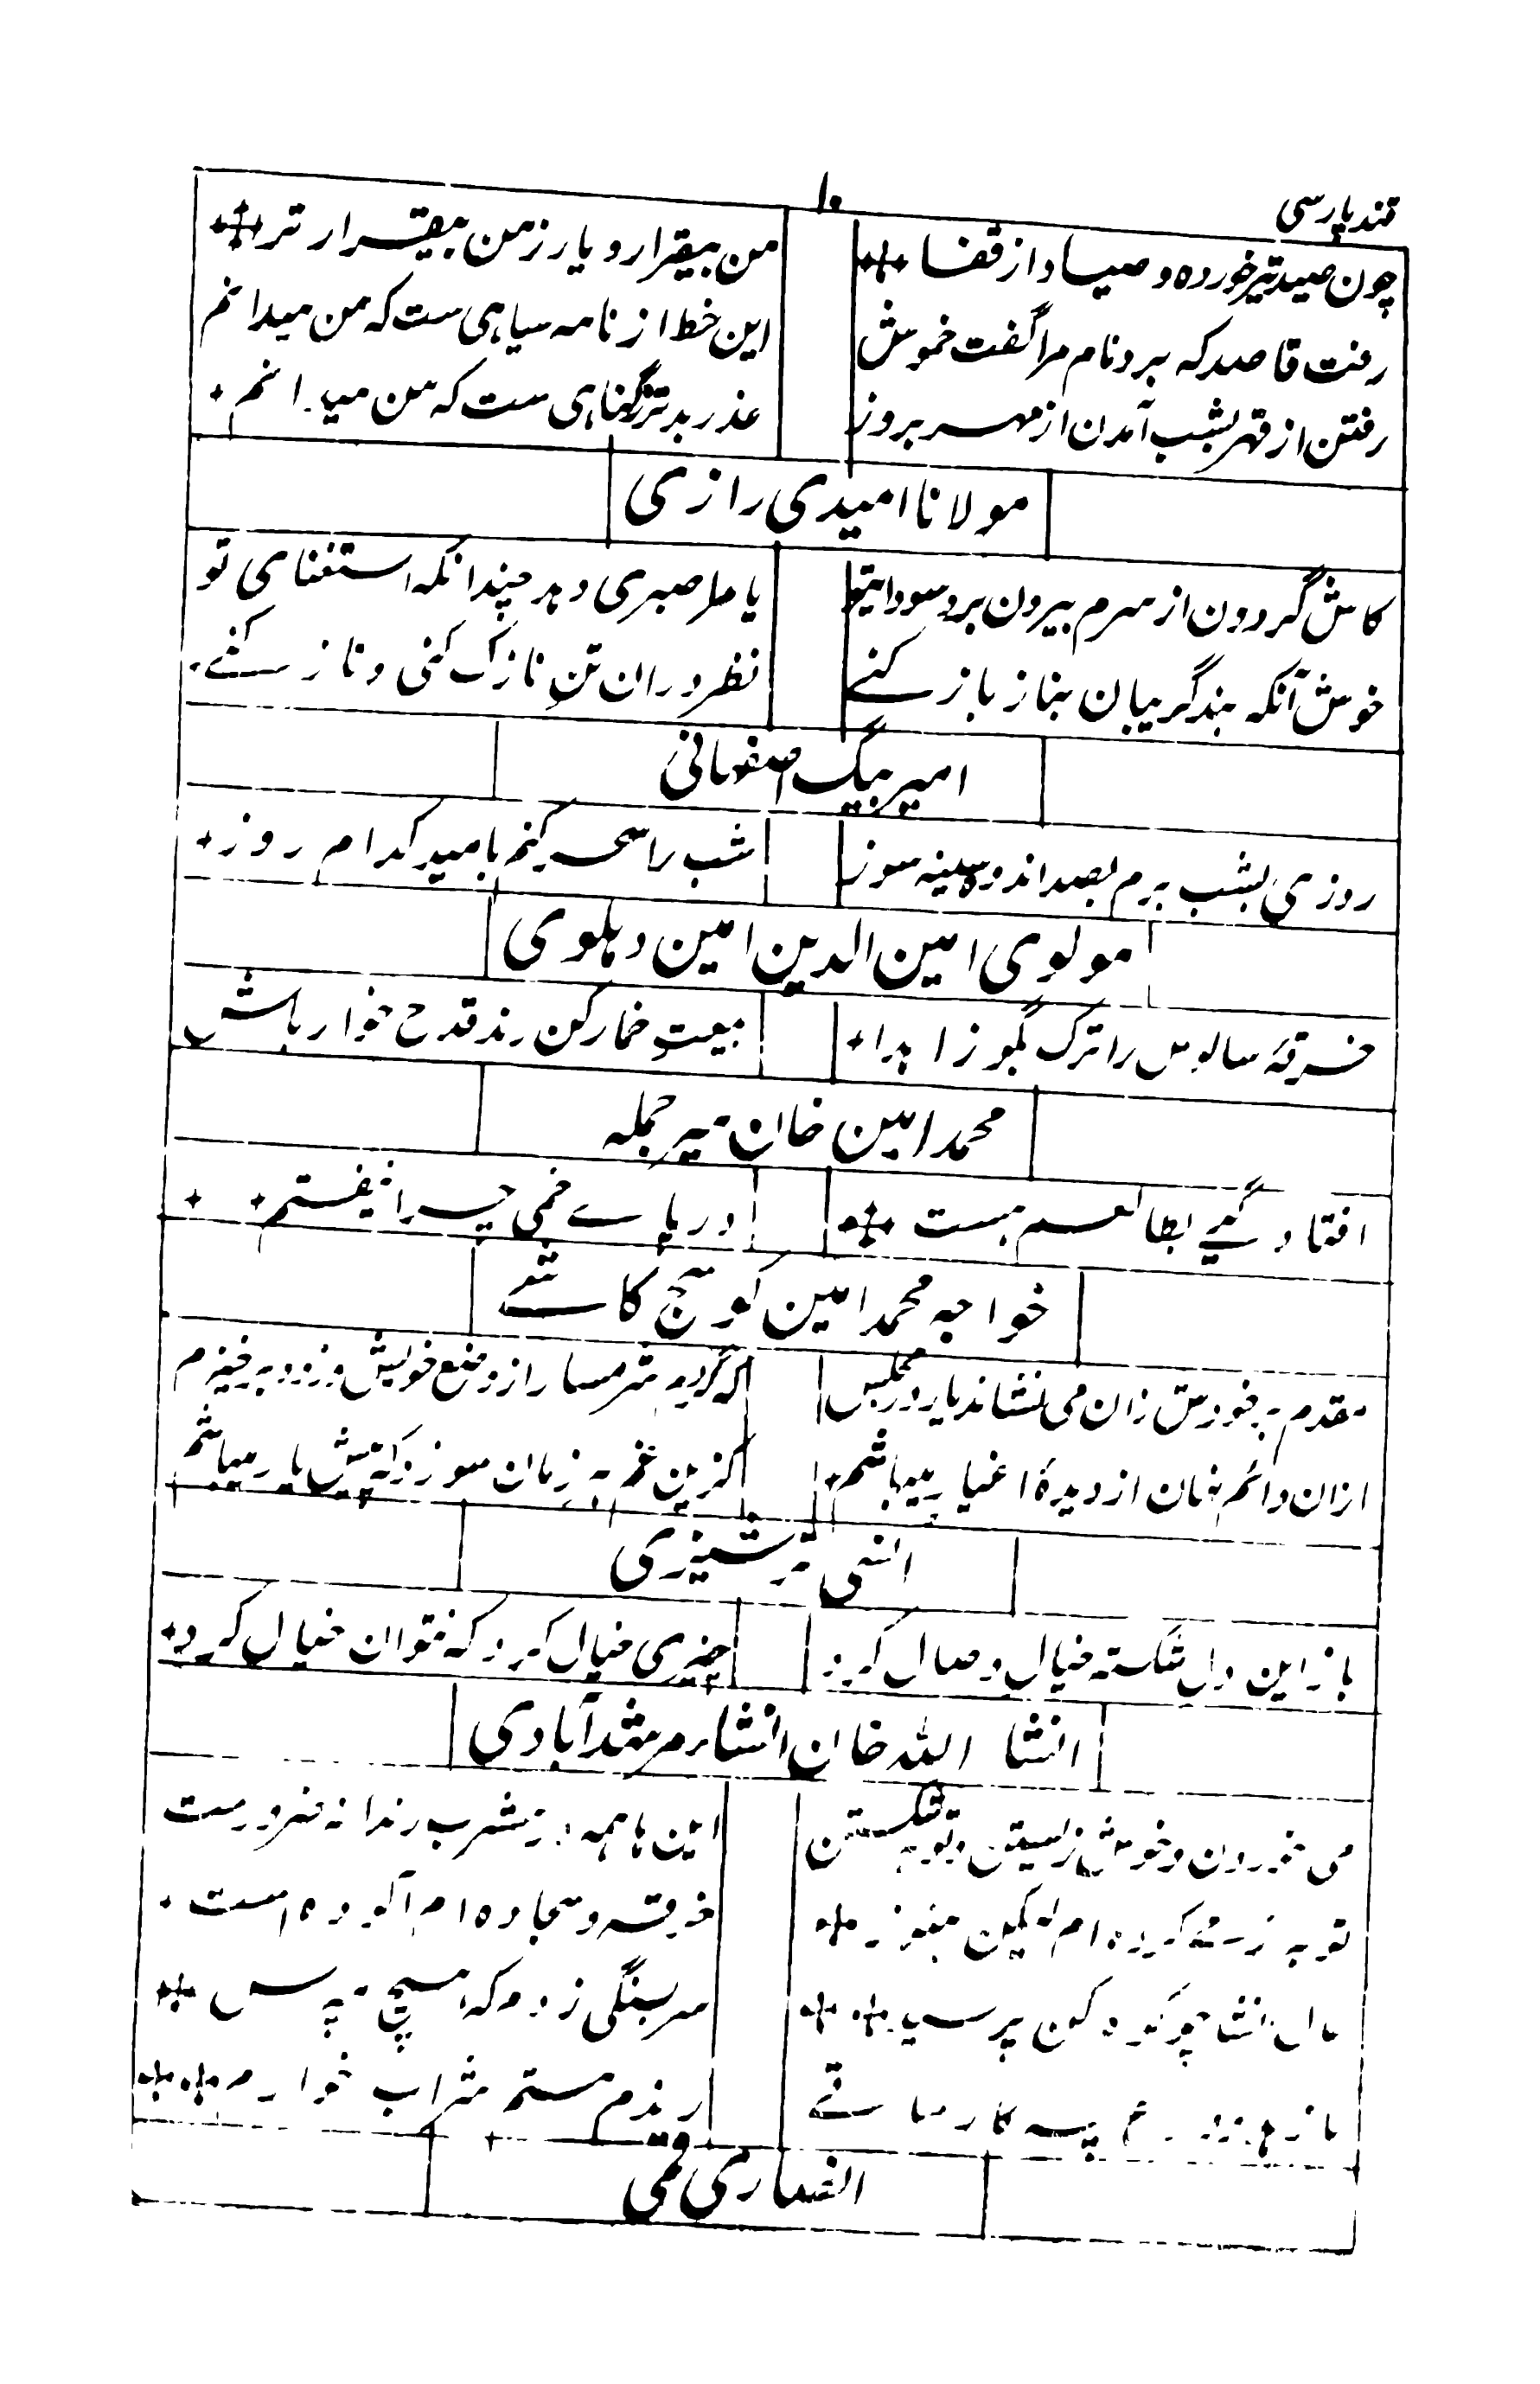 قند پارسی
۱۰
چون صید تیر خورده و صیاد از قفا
من بیقرار و یار ز من بیقرار تر
رفت قاصد که برد نام مرا گفت خموش
این خط از نامه سیاهی ست که من میدانم
رفتن از قهر بشب آمدن از مهر بروز
عذر بدتر ز گناهی ست که من میدانم
مولانا امیدی رازی
کاش گردون از سرم بیرون برد سودای تو
یا مرا صبری دهد چندانکه استغنای تو
خوش آنکه بند گریبان بناز باز کنے
نظر دران تن نازک کنی و ناز کنے
امیر بیگ اصفهانی
روزی بشب برم بصد اندوه سینه سوز
شب را سحر کنم بامید کدام روز
مولوی امین الدین امین دهلوی
خرقهٔ سالوس را ترک بگو زاهدا
بیعت خمار کن رند قدح خوار باش
محمد امین خان میر جمله
افتادگیے بطالعم هست
در پاے خمی چرا نیفتم
خواجه محمد امین کوسج کاشے
مقدم بر خودش زان می نشاند یار در مجلس
که گردم شرمسار از وضع خویش و زود برخیزم
ازان دائم نهان از دیدهٔ اغیار میباشم
کزین غم هر زمان سوزد که پیش یار میباشم
انسی ترشیزی
باز این دل شکسته خیال وصال کرد
چیزی خیال کرد که نتوان خیال کرد
انشا الله خان انشا مرشدآبادی
می خوردن و خوش زیستن و توبه شکستن
این ها همه در مشرب رندانه ضرورست
توبه ز مے کرده ام لیکن هنوز
خرقه و سجاده ام آلوده است
حال انشا چو کودکان پرسید
سر بسنگی زدم که هیچ مپرس
با زهد و ورع چه کار ساقے
رندم مستم شراب خوارم
انصاری قمی